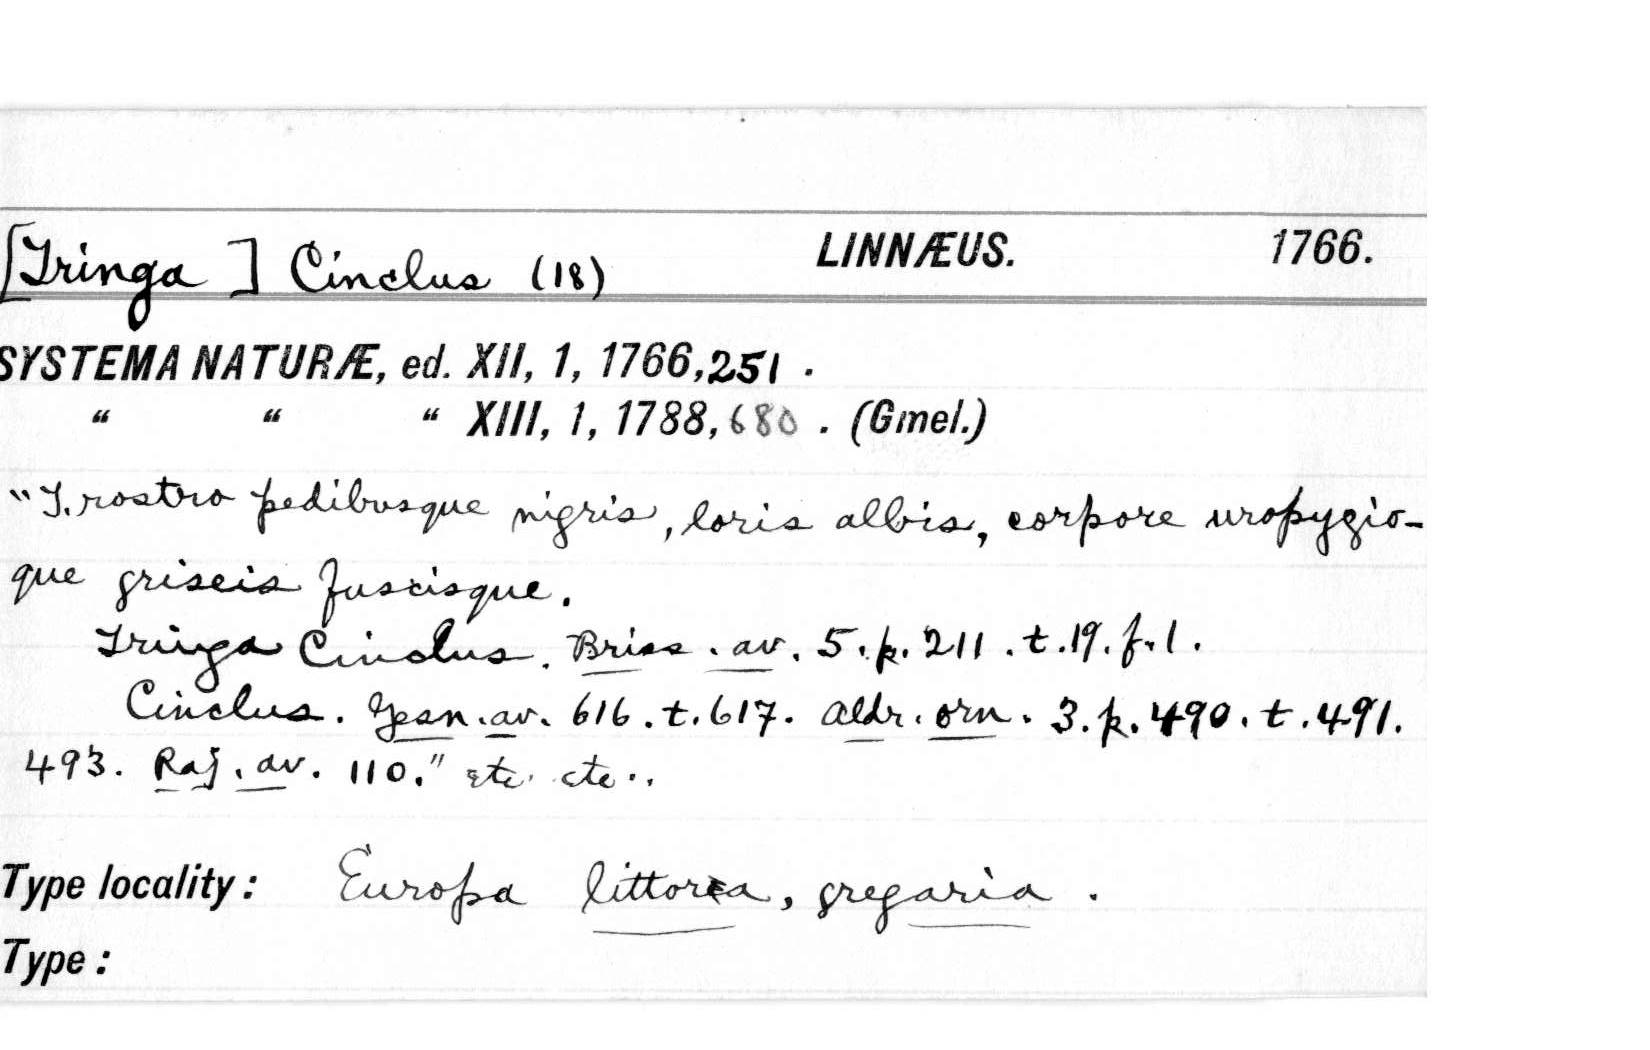 [Tringa ] Cinclus (18) LINNÆUS. 1766.
SYSTEMA NATURÆ, ed. XII, 1, 1766, 251 .
“ “ “ XIII, 1, 1788, 680 . (Gmel.)
"T. rostro pedibusque nigris, loris albis, corpore uropygio-
que griseis fuscisque.
Tringa Cinclus. Briss. av. 5. p. 211. t. 19. f. 1.
Cinclus. Gesn. av. 616. t. 617. Aldr. orn. 3. p. 490. t. 491.
493. Raj. av. 110." etc. etc..
Type locality: Europa littorea, gregaria .
Type: